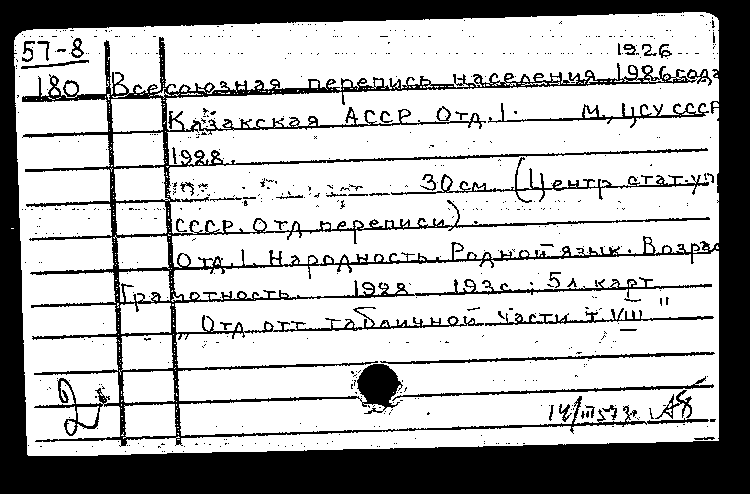 57-8 1926
180 Всесоюзная перепись населения 1926 года
Казакская АССР. Отд. 1. М., ЦСУ СССР,
1928.
30 см. (Центр. стат. упр.
СССР. Отд. переписи).
Отд. 1. Народность. Родной язык. Возрас
Грамотность. 1928 193 с.; 5 л. карт
„Отд. отт. табличной части т. VIII"
2
14/III 57 г.